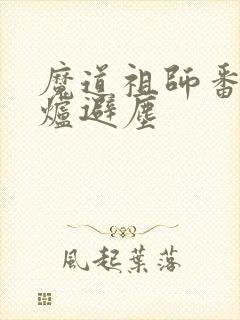 魔道祖師番
爐避塵
風起葉落